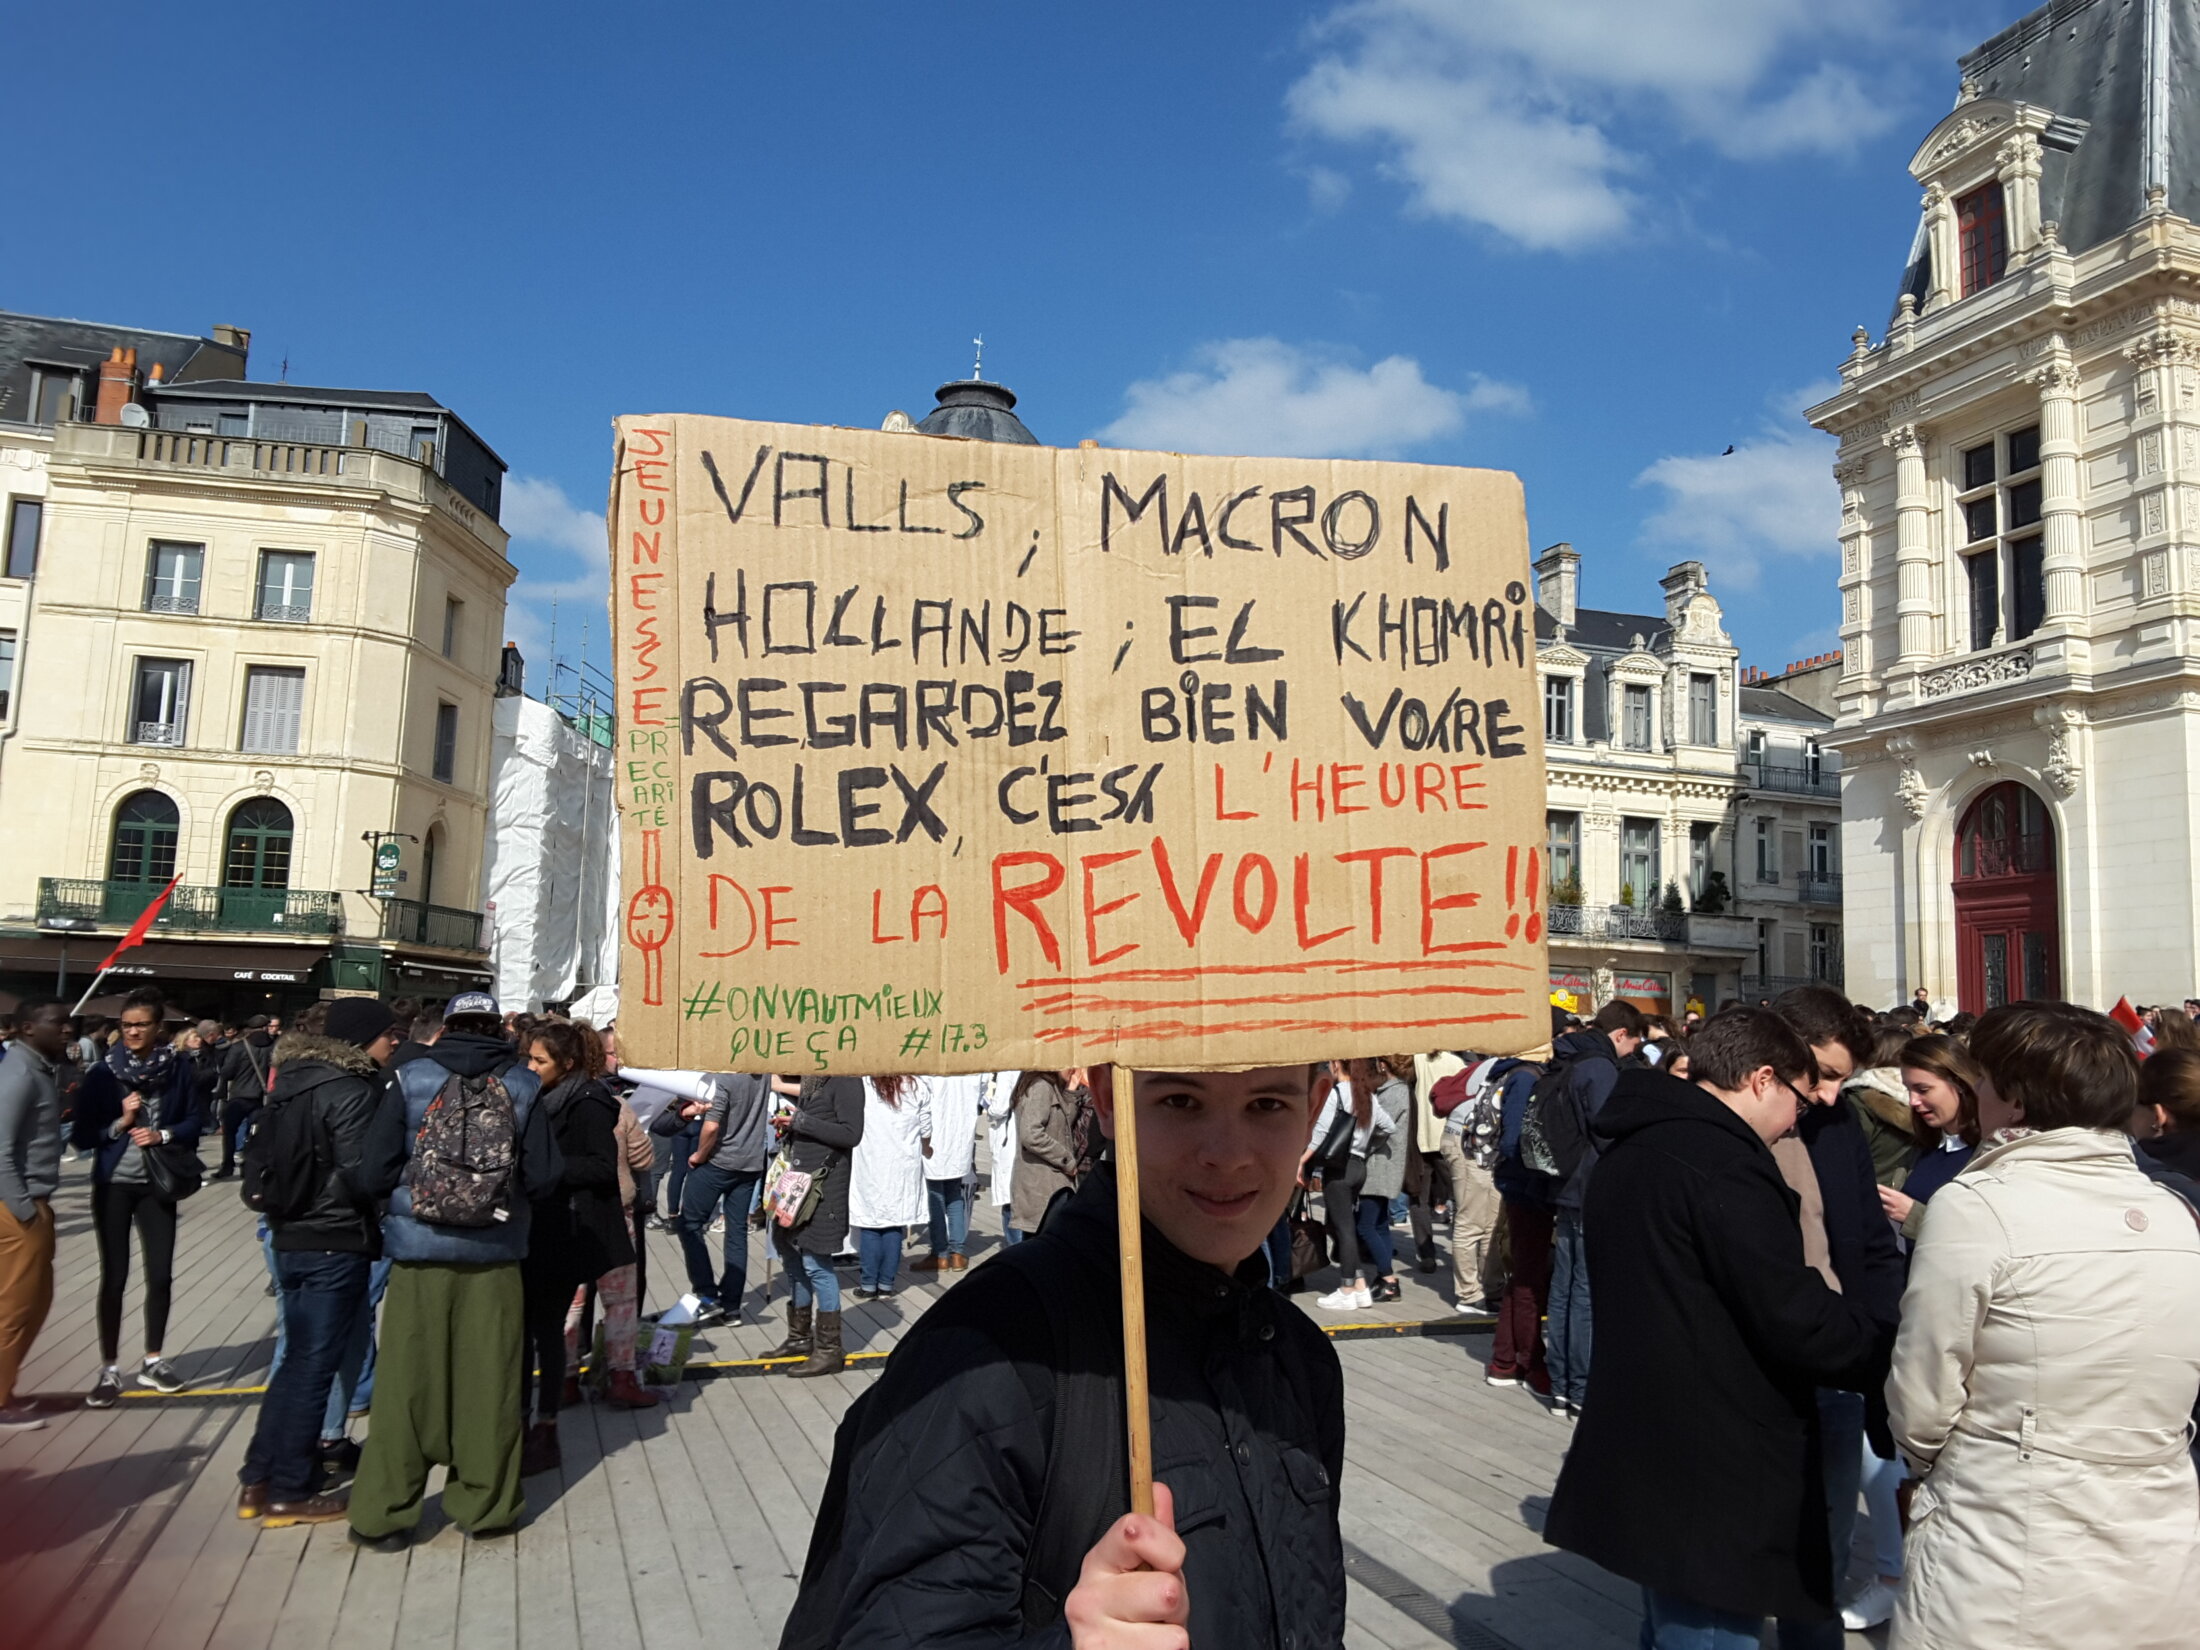 JEUNESSE
PR
EC
ARI
TÉ
VALLS, MACRON
HOLLANDE, EL KHOMRI
REGARDEZ BIEN VOTRE
ROLEX, C'EST L'HEURE
DE LA REVOLTE!!
#ONVAUTMIEUX
QUE ÇA #17.3
CAFÉ COCKTAIL